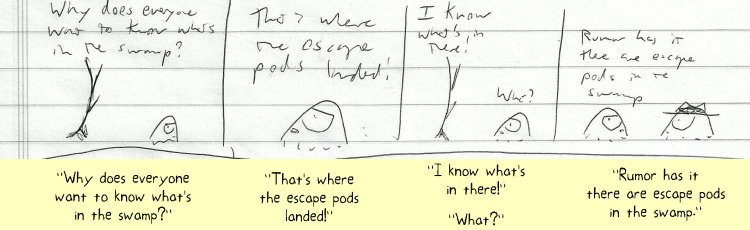 Why does everyone
want to know whats
in the swamp?
That's where
the escape
pods landed!
I know
what's in
there!
What?
Rumor has it
there are escape
pods in the
swamp
"Why does everyone
want to know what's
in the swamp?"
"That's where
the escape pods
landed!"
"I know what's
in there!"
"What?"
"Rumor has it
there are escape pods
in the swamp."